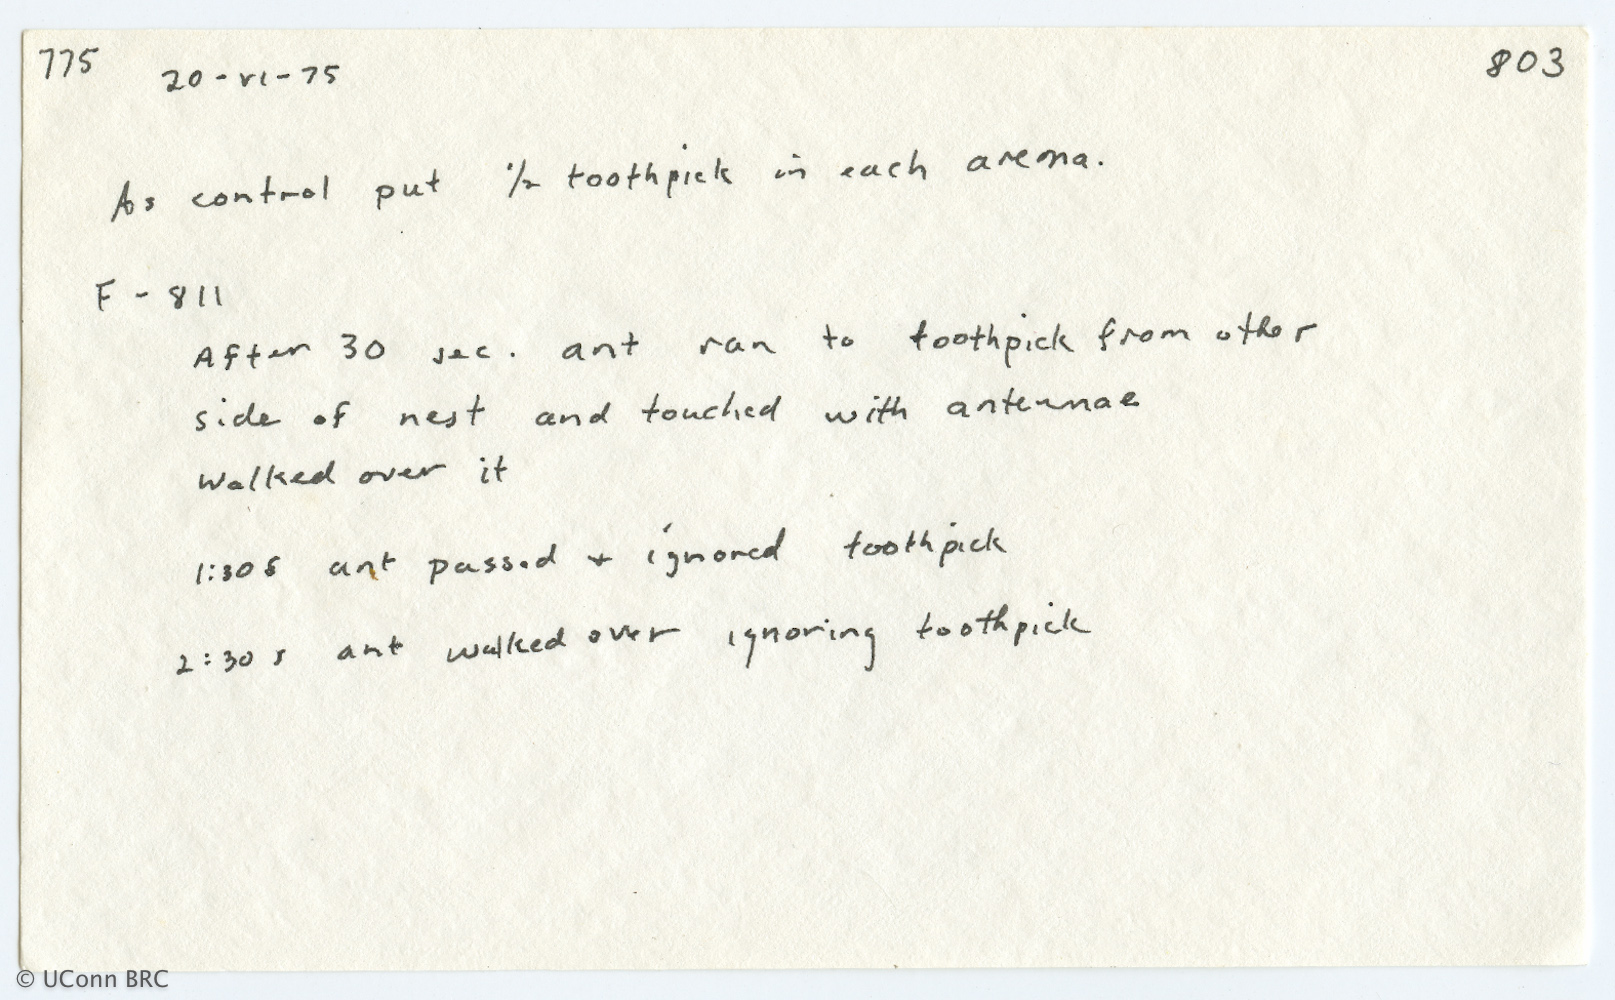 775 20-VI-75 803
As control put 1/2 toothpick in each arena.
F - 811
After 30 sec. ant ran to toothpick from other
side of nest and touched with antennae
walked over it
1:30 s ant passed + ignored toothpick
2:30 s ant walked over ignoring toothpick
© UConn BRC